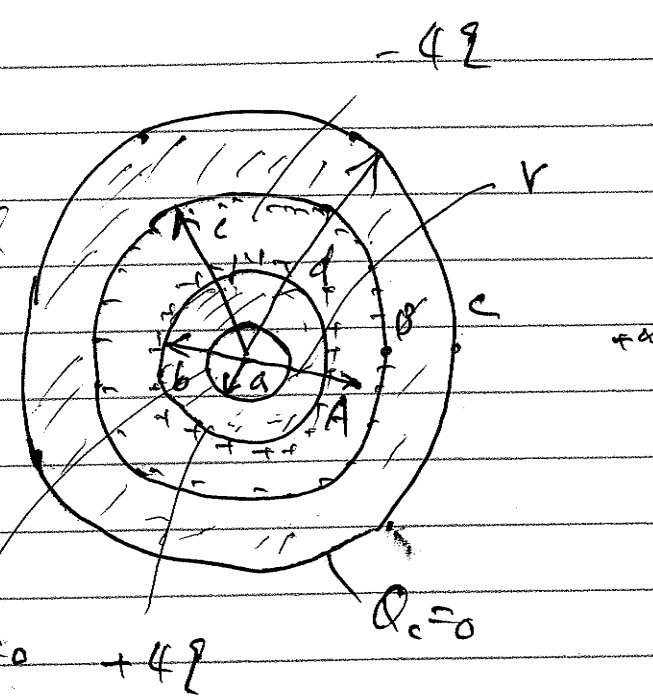 - 4q
r
c
d
B
C
b
a
A
Qc = 0
=0
+4q